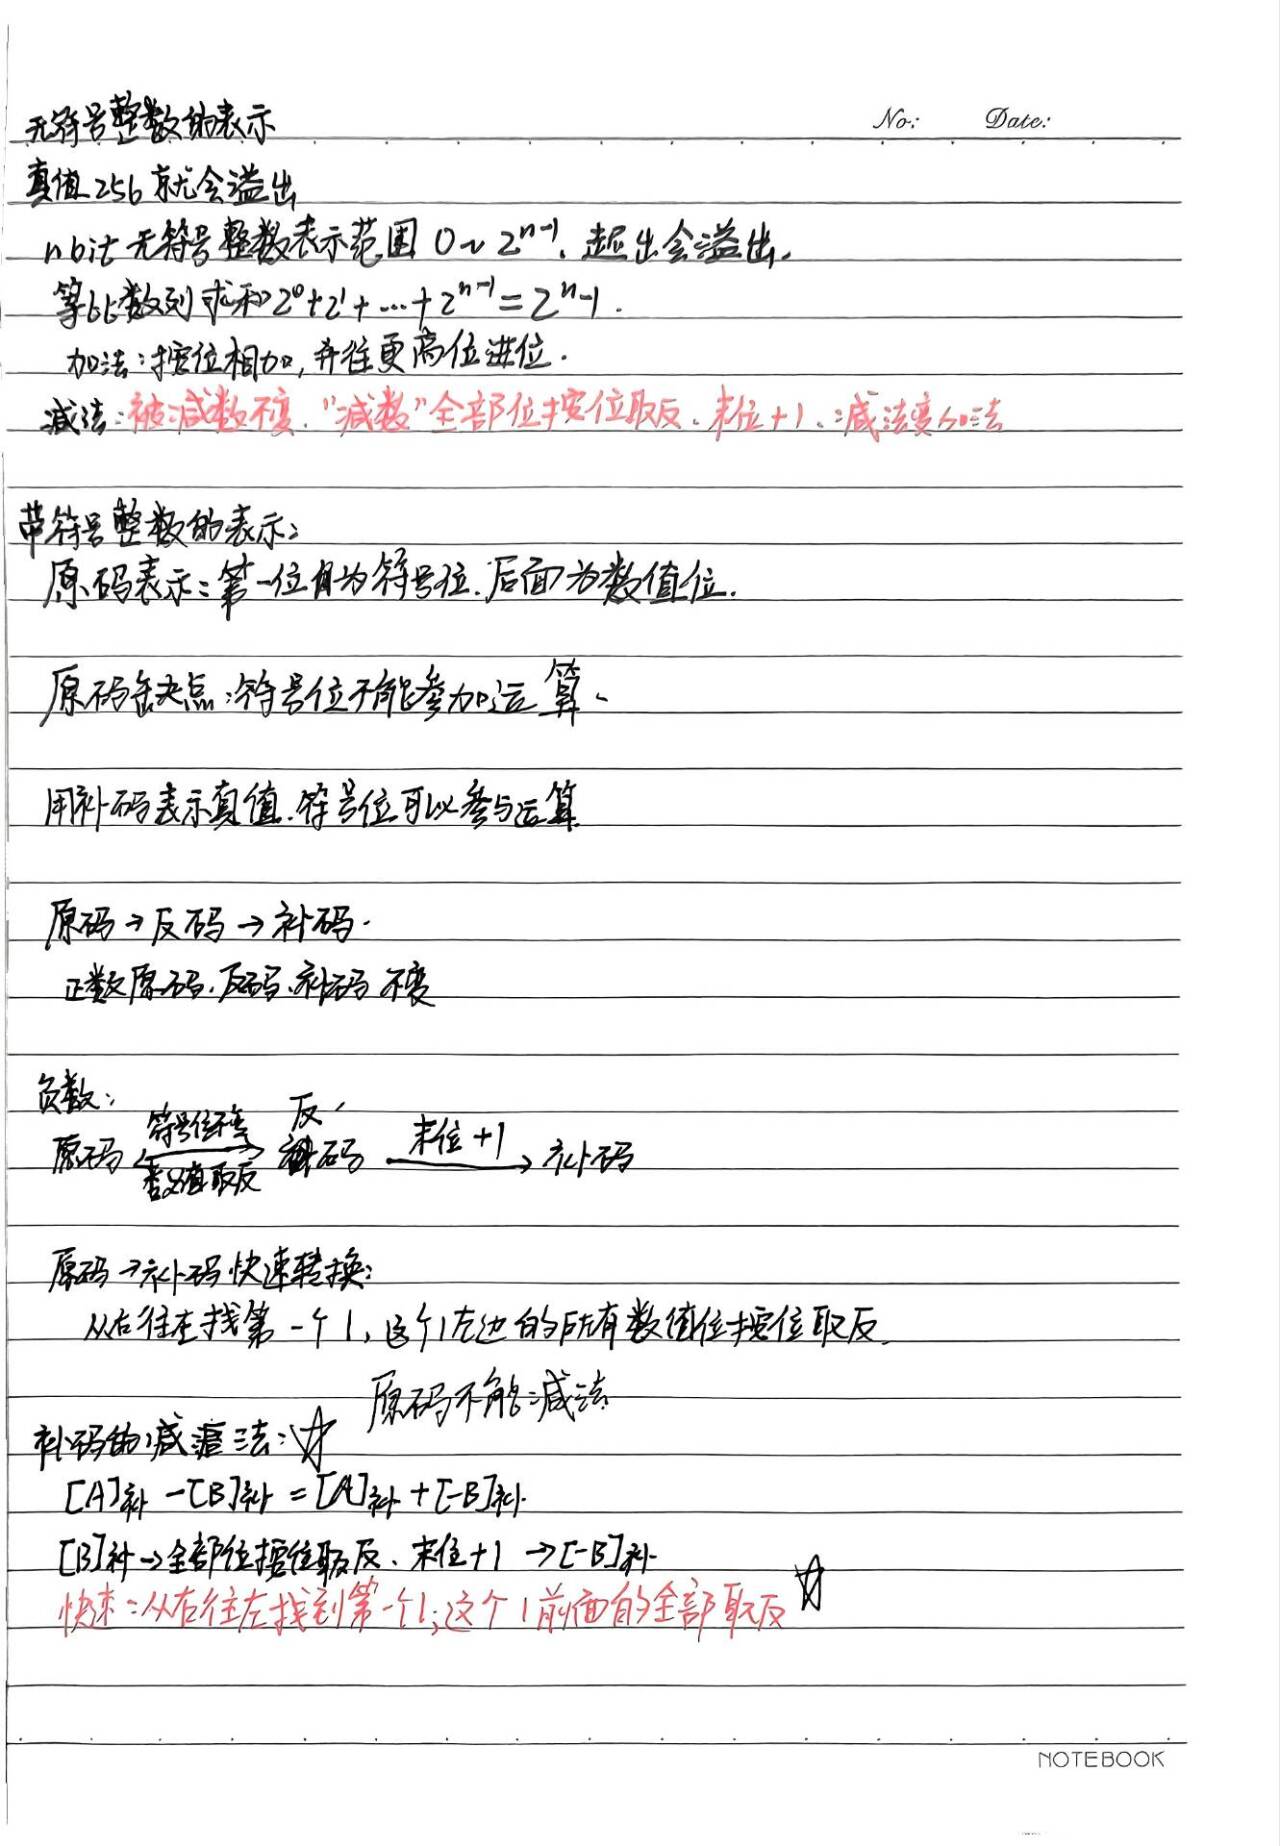 No: Date:
无符号整数的表示
真值256就会溢出
nbit 无符号整数表示范围 0~2ⁿ⁻¹. 超出会溢出.
等比数列求和 2⁰+2¹+…+2ⁿ⁻¹=2ⁿ-1.
加法:按位相加,并往更高位进位.
减法:被减数不变."减数"全部位按位取反.末位+1.减法变加法
带符号整数的表示:
原码表示:第一位为符号位.后面为数值位.
原码缺点:符号位不能参加运算.
用补码表示真值.符号位可以参与运算
原码→反码→补码.
正数原码.反码.补码 不变
负数:
原码 符号位不变 数值取反 反码 末位+1 → 补码
原码→补码快速转换:
从右往左找第一个1,这个1左边的所有数值位按位取反.
原码不能减法
补码的减法:☆
[A]补-[B]补=[A]补+[-B]补.
[B]补→全部位按位取反.末位+1→[-B]补
快速:从右往左找到第一个1;这个1前面的全部取反 ☆
NOTEBOOK